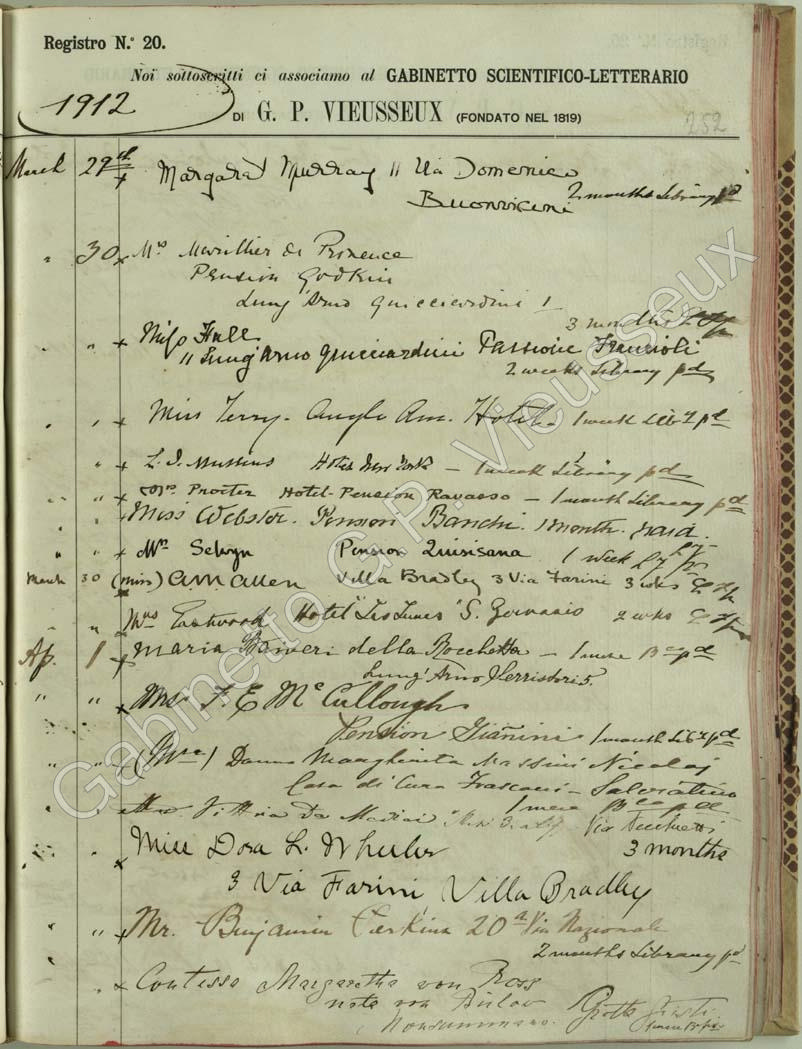 Registro N.° 20.
Noi sottoscritti ci associamo al GABINETTO SCIENTIFICO-LETTERARIO
1912
DI G. P. VIEUSSEUX (FONDATO NEL 1819)
252
March 29th Margaret Murray 11 Via Domenico
Buonvicini 2 months Library pd
" 30 Mrs de Provence
Pension Godkin
Lung'Arno Guicciardini 1
3 months
" " Miss Hall
11 Lung'Arno Guicciardini Passione
2 weeks Library pd
" " Miss Terry - Anglo Am. Hotel. 1 week Liby pd
" Hotel New York - 1 week Library pd
" Mrs Procter Hotel-Pension Ravasso - 1 month Library pd
" Miss Webster. Pension Banchi. 1 month. paid.
" " Mrs Selwyn Pension Quisisana 1 week
March 30 (Miss) A.M. Allen Villa Bradley 3 Via Farini 3 wks
" Mrs Eastwood Hotel "Les Lunes" S. Gervasio 2 wks
Ap. 1 Maria della Rocchetta - 1 mese pd
Lung'Arno Serristori 5.
" " Mrs. F. E. McCullough
Pension Giannini 1 month Liby pd
" " Donna Margherita Massini Nicolaj
Casa di Cura Frascani -
1 mese
" Vittoria De Via
" Miss Dora L. Wheeler 3 months
3 Via Farini, Villa Bradley
" " Mr. Benjamin Perkins 20a Via Nazionale
2 months Library pd
" Contessa Margaretha von Ross
nata von Bülow Grotta Giusti
Monsummano.
Gabinetto G.P. Vieusseux